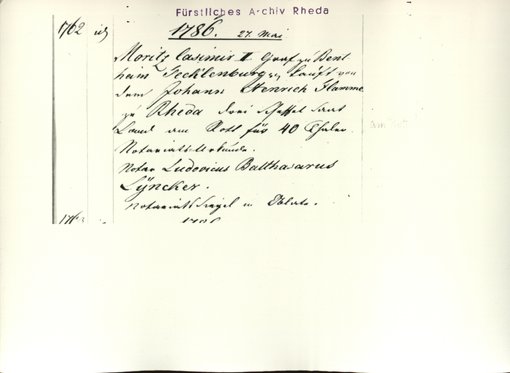 Fürstliches Archiv Rheda
1762
1786. 27. Mai
Moritz Casimir II Graf zu Bent
heim Tecklenburg kauft von
dem Johann Henrich Flamme
zu Rheda drei Scheffel Saat
Land am Rott für 40 Thaler.
Notariats Urkunde.
Notar Ludovicus Balthasarus
Lÿncker.
Notariats Siegel in Oblate.